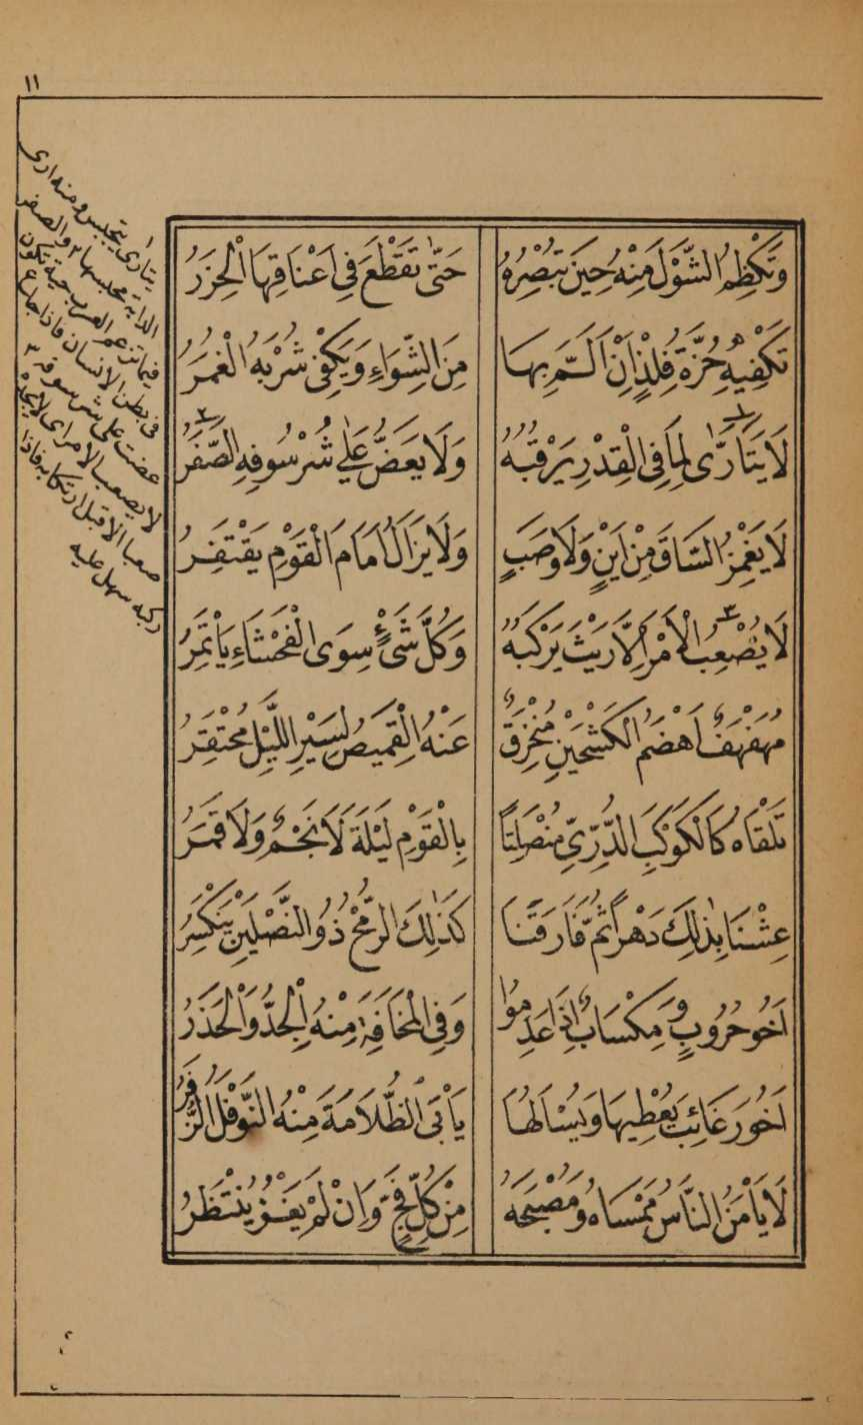 ١١
وَتَكْظِمُ الشَّوْلَ مِنْهُ حِيْنَ تَبْصِرُهُ حَتّٰى تَقَطَّعَ فِى اَعْنَاقِهَا الْجِزَرُ
تَكْفِيْهِ حُزَّةُ فِلْذٍ اِنْ اَلَمَّ بِهَا مِنَ الشِّوَاءِ وَيَكْفِى شُرْبَهُ الْغُمَرُ
لَا يَتَاَرّٰى لِمَا فِى الْقِدْرِ يَرْقُبُهُ وَلَا يَعَضُّ عَلٰى شُرْسُوفِهِ الصَّفَرُ
لَا يَغْمِزُ السَّاقَ مِنْ اَيْنٍ وَلَا وَصَبٍ وَلَا يَزَالُ اَمَامَ الْقَوْمِ يَقْتَفِرُ
لَا يُصْعِبُ الْاَمْرَ اِلَّا رَيْثَ يَرْكَبُهُ وَكُلَّ شَىْءٍ سِوَى الْفَحْشَاءِ يَاْتَمِرُ
مُهَفْهَفٌ اَهْضَمُ الْكَشْحَيْنِ مُنْخَرِقٌ عَنْهُ الْقَمِيصُ لِسَيْرِ اللَّيْلِ مُحْتَقِرُ
تَلْقَاهُ كَالْكَوْكَبِ الدُّرِّىِّ مُنْصَلِتًا بِالْقَوْمِ لَيْلَةَ لَا نَجْمٌ وَلَا قَمَرُ
عِشْنَا بِذٰلِكَ دَهْراً ثُمَّ فَارَقَنَا كَذٰلِكَ الرُّمْحُ ذُو النَّصْلَيْنِ يَنْكَسِرُ
اَخُو حُرُوبٍ وَمِكْسَابٌ اِذَا عَدِمُوا وَفِى الْمَخَافَةِ مِنْهُ الْجِدُّ وَالْحَذَرُ
اَخُو رَغَائِبَ يُعْطِيهَا وَيُسْاَلُهَا يَاْبَى الظُّلَامَةَ مِنْهُ النَّوْفَلُ الزُّفَرُ
لَا يَاْمَنُ النَّاسُ مُمْسَاهُ وَمُصْبَحَهُ مِنْ كُلِّ فَجٍّ وَاِنْ لَمْ يَغْزُ يُنْتَظَرُ
١ يتأرى يتحبس ومنه ارى
الدابة محبسها ٢ والصفر
فيما تزعم العرب حية تكون
فى بطن الانسان فاذا جاع
عضت على شرسوفه ٣
لا يصعب الامر اى لا يجده
صعبا الا قبل ارتكابه فاذا
ركبه سهل عليه